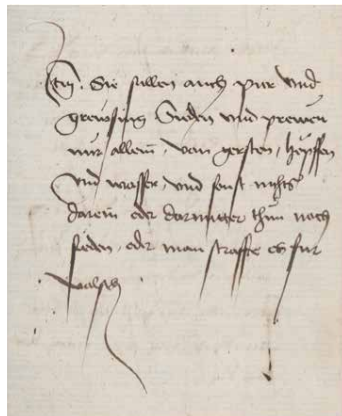 Itm. Sie sullen auch pir und
grewssing Sieden und prewen
nur allein, von gersten, hopffen
und wasser, und sonst nichts
darein oder darunter thun noch
sieden, oder man straffe es fur
valsch